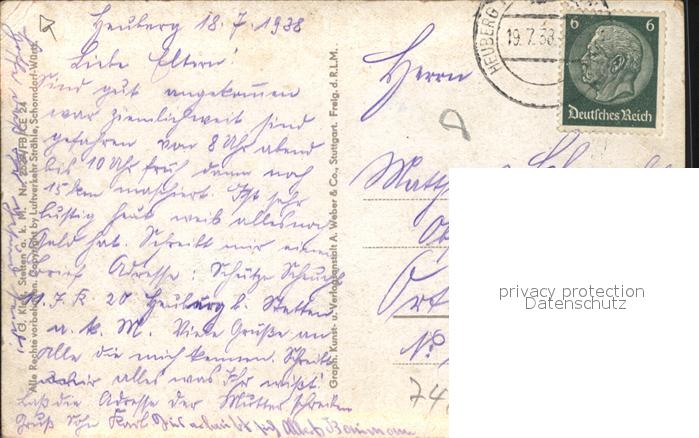 Heuberg 18.7.1938
Liebe Eltern!
Sind gut angekommen
war ziemlich weit sind
gefahren von 8 Uhr abend
bis 10 Uhr früh dann noch
15 km maschiert. Ist sehr
lustig heut weil alles noch
Geld hat. Schreibt mir einen
Brief Adresse: Schütze
Heuberg b. Stetten
a. k. M. Viele Grüße an
alle die mich kennen. Schreibt
mir alles was Ihr wißt!
Laß die Adresse der Mutter schreiben
Gruß Sohn Karl
G. Stetten a. k. M. Nr.
Alle Rechte vorbehalten. Copyright by Luftverkehr Strähle, Schorndorf-Württ.
Graph. Kunst- u. Verlagsanstalt A. Weber & Co., Stuttgart. Freig. d. R.L.M.
HEUBERG
19.7.38
6 6
Deutsches Reich
Herrn
Matth
Ort
No
privacy protection
Datenschutz